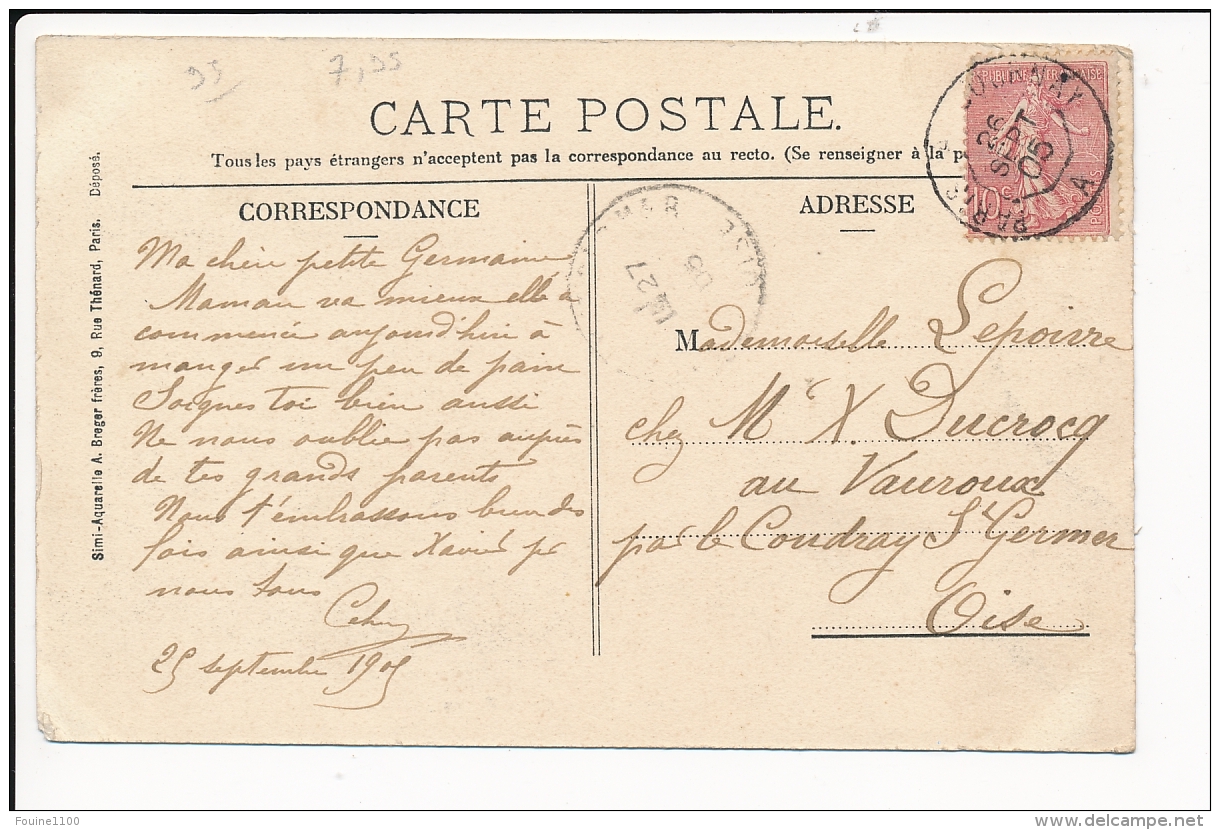 95 7,95
CARTE POSTALE.
Tous les pays étrangers n'acceptent pas la correspondance au recto. (Se renseigner à la po
CORRESPONDANCE
Ma chère petite Germaine
Maman va mieux elle a
commencé aujourd'hui à
manger un peu de pain
Soignes toi bien aussi
Ne nous oublie pas auprès
de tes grands parents
Nous t'embrassons bien des
fois ainsi que Xavier pr
nous tous
25 septembre 1905
ADRESSE
Mademoiselle Lepoivre
chez Mr X. Ducrocq
au Vauroux
par le Coudray St Germer
Oise
Simi-Aquarelle A. Breger frères, 9, Rue Thénard, Paris. Déposé.
REPUBLIQUE FRANÇAISE
10c
POSTES
26
SEPT
05
PARIS A
27
05
OISE
Fouine1100
www.delcampe.net